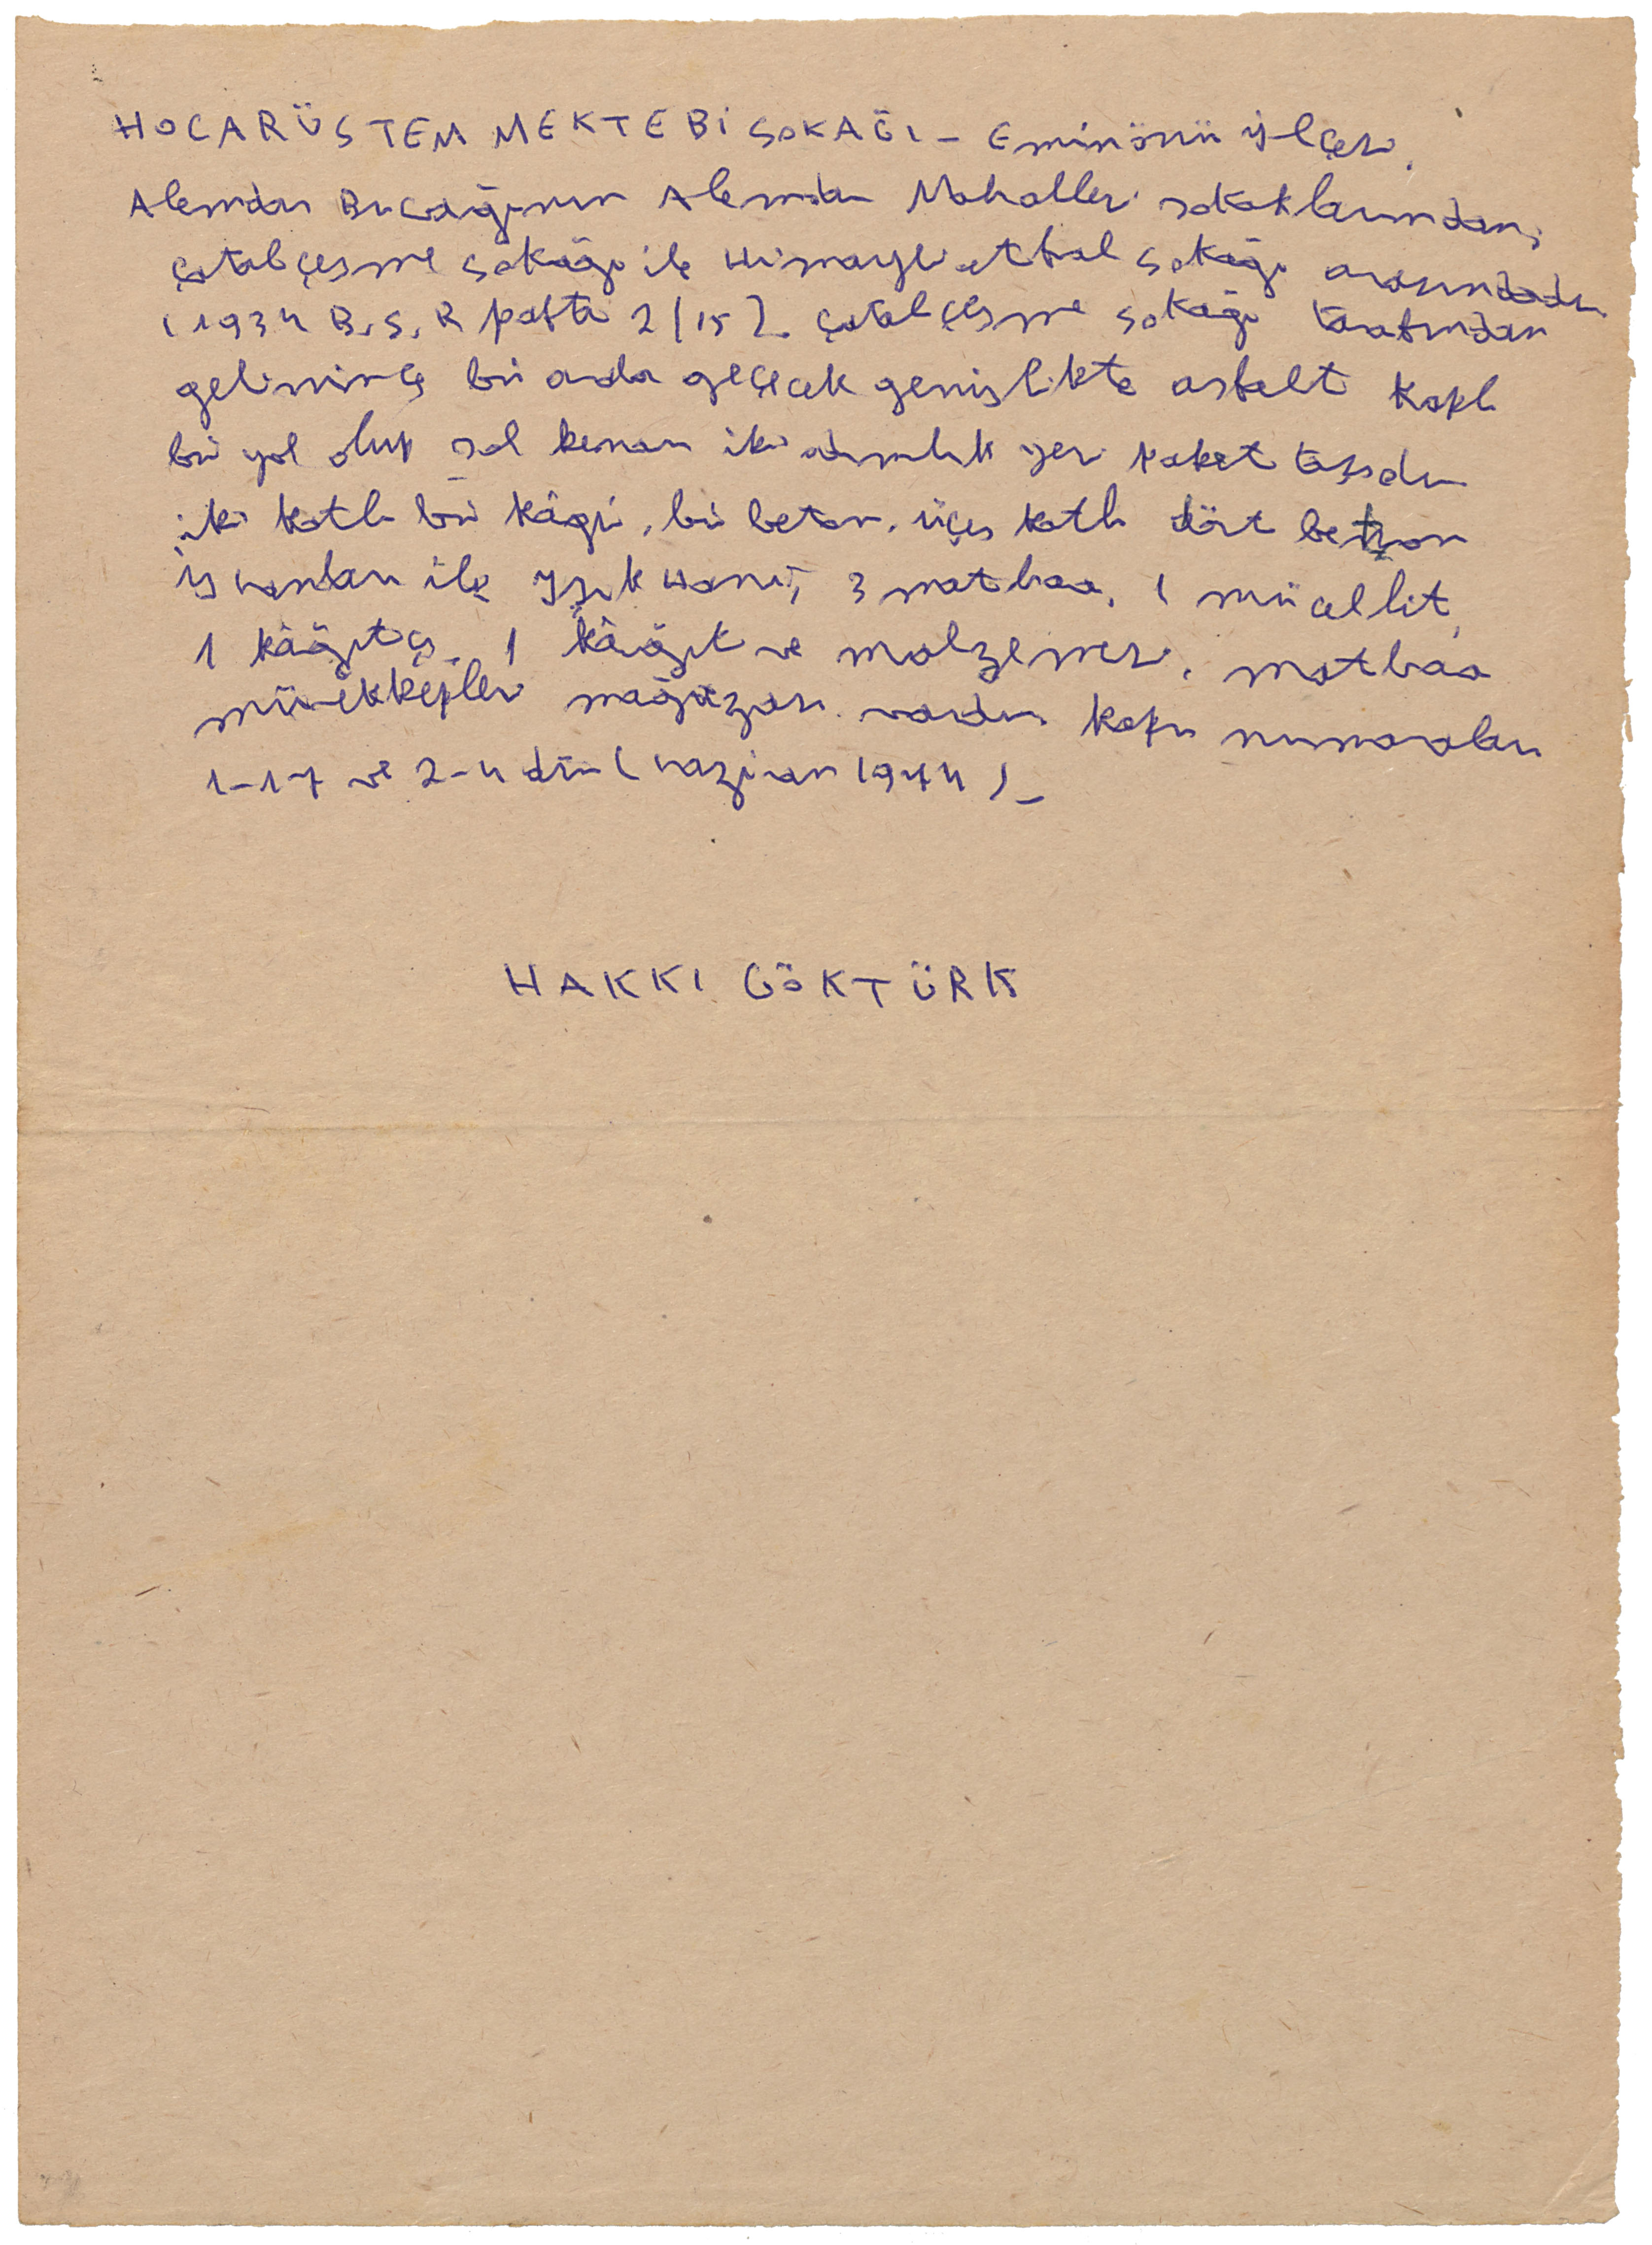 HOCARÜSTEM MEKTEBİ SOKAĞI - Eminönü ilçesi,
Alemdar Bucağının Alemdar Mahallesi sokaklarından;
çatalçeşme sokağı ile Himayei etfal sokağı arasındadır
(1934 B.S.R pafta 2/15). çatalçeşme sokağı tarafından
gelinince bir araba geçecek genişlikte asfalt kaplı
bir yol olup sol kenarı iki adımlık yer paket taşıdır
iki katlı bir kâgir, bir beton, üçer katlı dört beton
iş hanları ile Işık Hanı, 3 matbaa, 1 mücellit,
1 kâğıtçı, 1 kâğıt ve malzemesi, matbaa
mürekkepleri mağazası vardır kapu numaraları
1-17 ve 2-4 dür (haziran 1974) -
HAKKI GÖKTÜRK